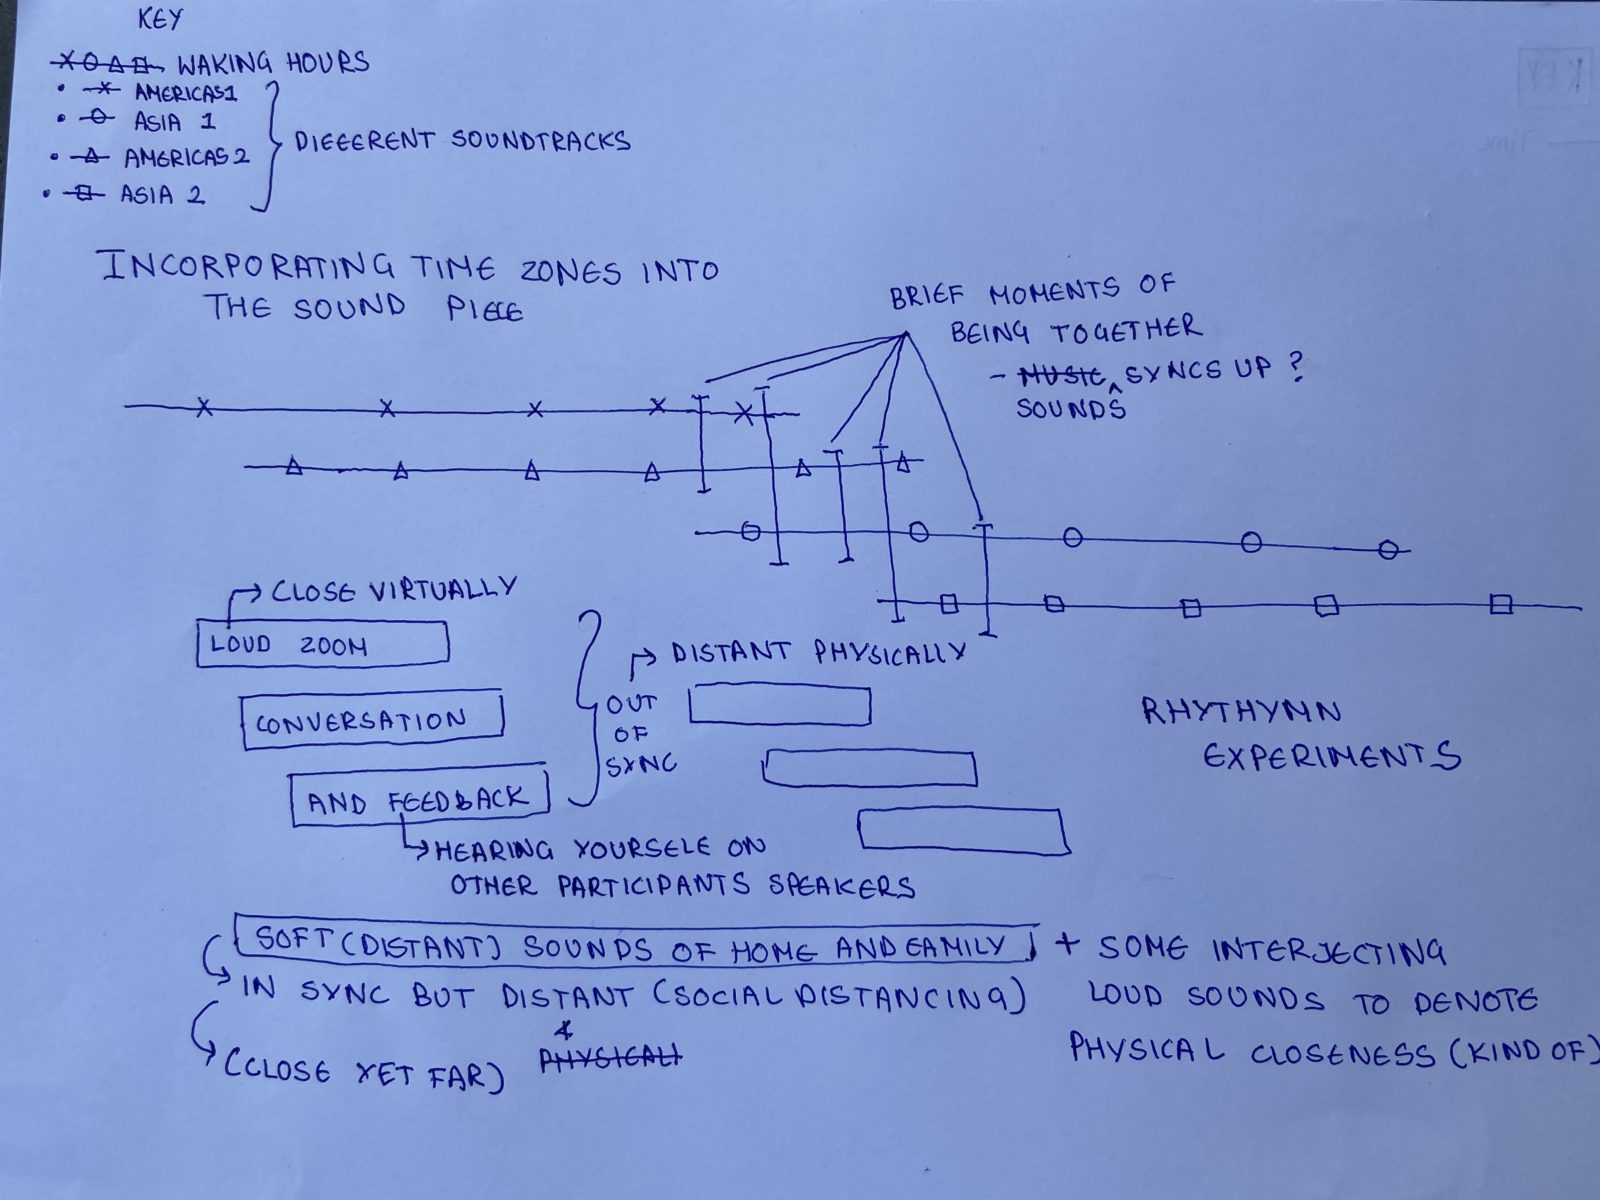 KEY
WAKING HOURS
AMERICAS1
ASIA 1
AMERICAS 2
ASIA 2
DIFFERENT SOUNDTRACKS
INCORPORATING TIME ZONES INTO
THE SOUND PIECE
BRIEF MOMENTS OF
BEING TOGETHER
- MUSIC SYNCS UP ?
SOUNDS
CLOSE VIRTUALLY
LOUD ZOOM
CONVERSATION
AND FEEDBACK
OUT
OF
SYNC
DISTANT PHYSICALLY
RHYTHYMN
EXPERIMENTS
HEARING YOURSELF ON
OTHER PARTICIPANTS SPEAKERS
SOFT (DISTANT) SOUNDS OF HOME AND FAMILY
IN SYNC BUT DISTANT (SOCIAL DISTANCING)
(CLOSE YET FAR)
PHYSICALI
+ SOME INTERJECTING
LOUD SOUNDS TO DENOTE
PHYSICAL CLOSENESS (KIND OF)
KEY
Time